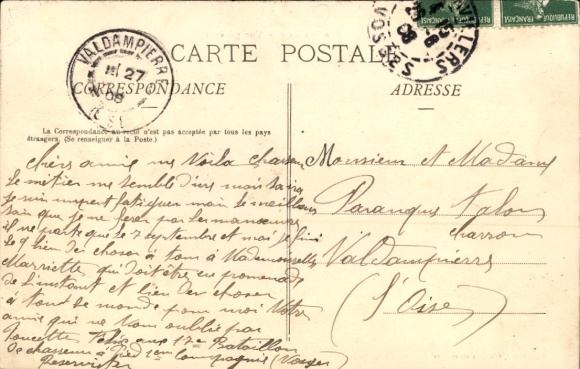 CARTE POSTALE
CORRESPONDANCE
ADRESSE
La Correspondance au recto n'est pas acceptée par tous les pays
étrangers. (Se renseigner à la Poste.)
VALDAMPIERRE
27
08
REPUBLIQUE FRANÇAISE
REPUBLIQUE FRANÇAISE
VOSGES
08
chers amis me Voila chasseur
le métier me semble dur mais
je suis fatiguer mais le meilleur
sait que je ne ferai pas les manoeuvres
il ne parte que le 7 septembre et moi je fini
le 9 bien des choses a tous à Mademoiselle
Marriette qui doit être en promenade
de l'instant et bien des choses
à tout le monde pour moi Votre
amie qui ne Vous oublie pas
17e Bataillon
de chasseurs à Pied 2em Compagnie (Vosges)
Reserviste
Monsieur et Madame
Talon
charron
Valdampierre
(l'Oise)